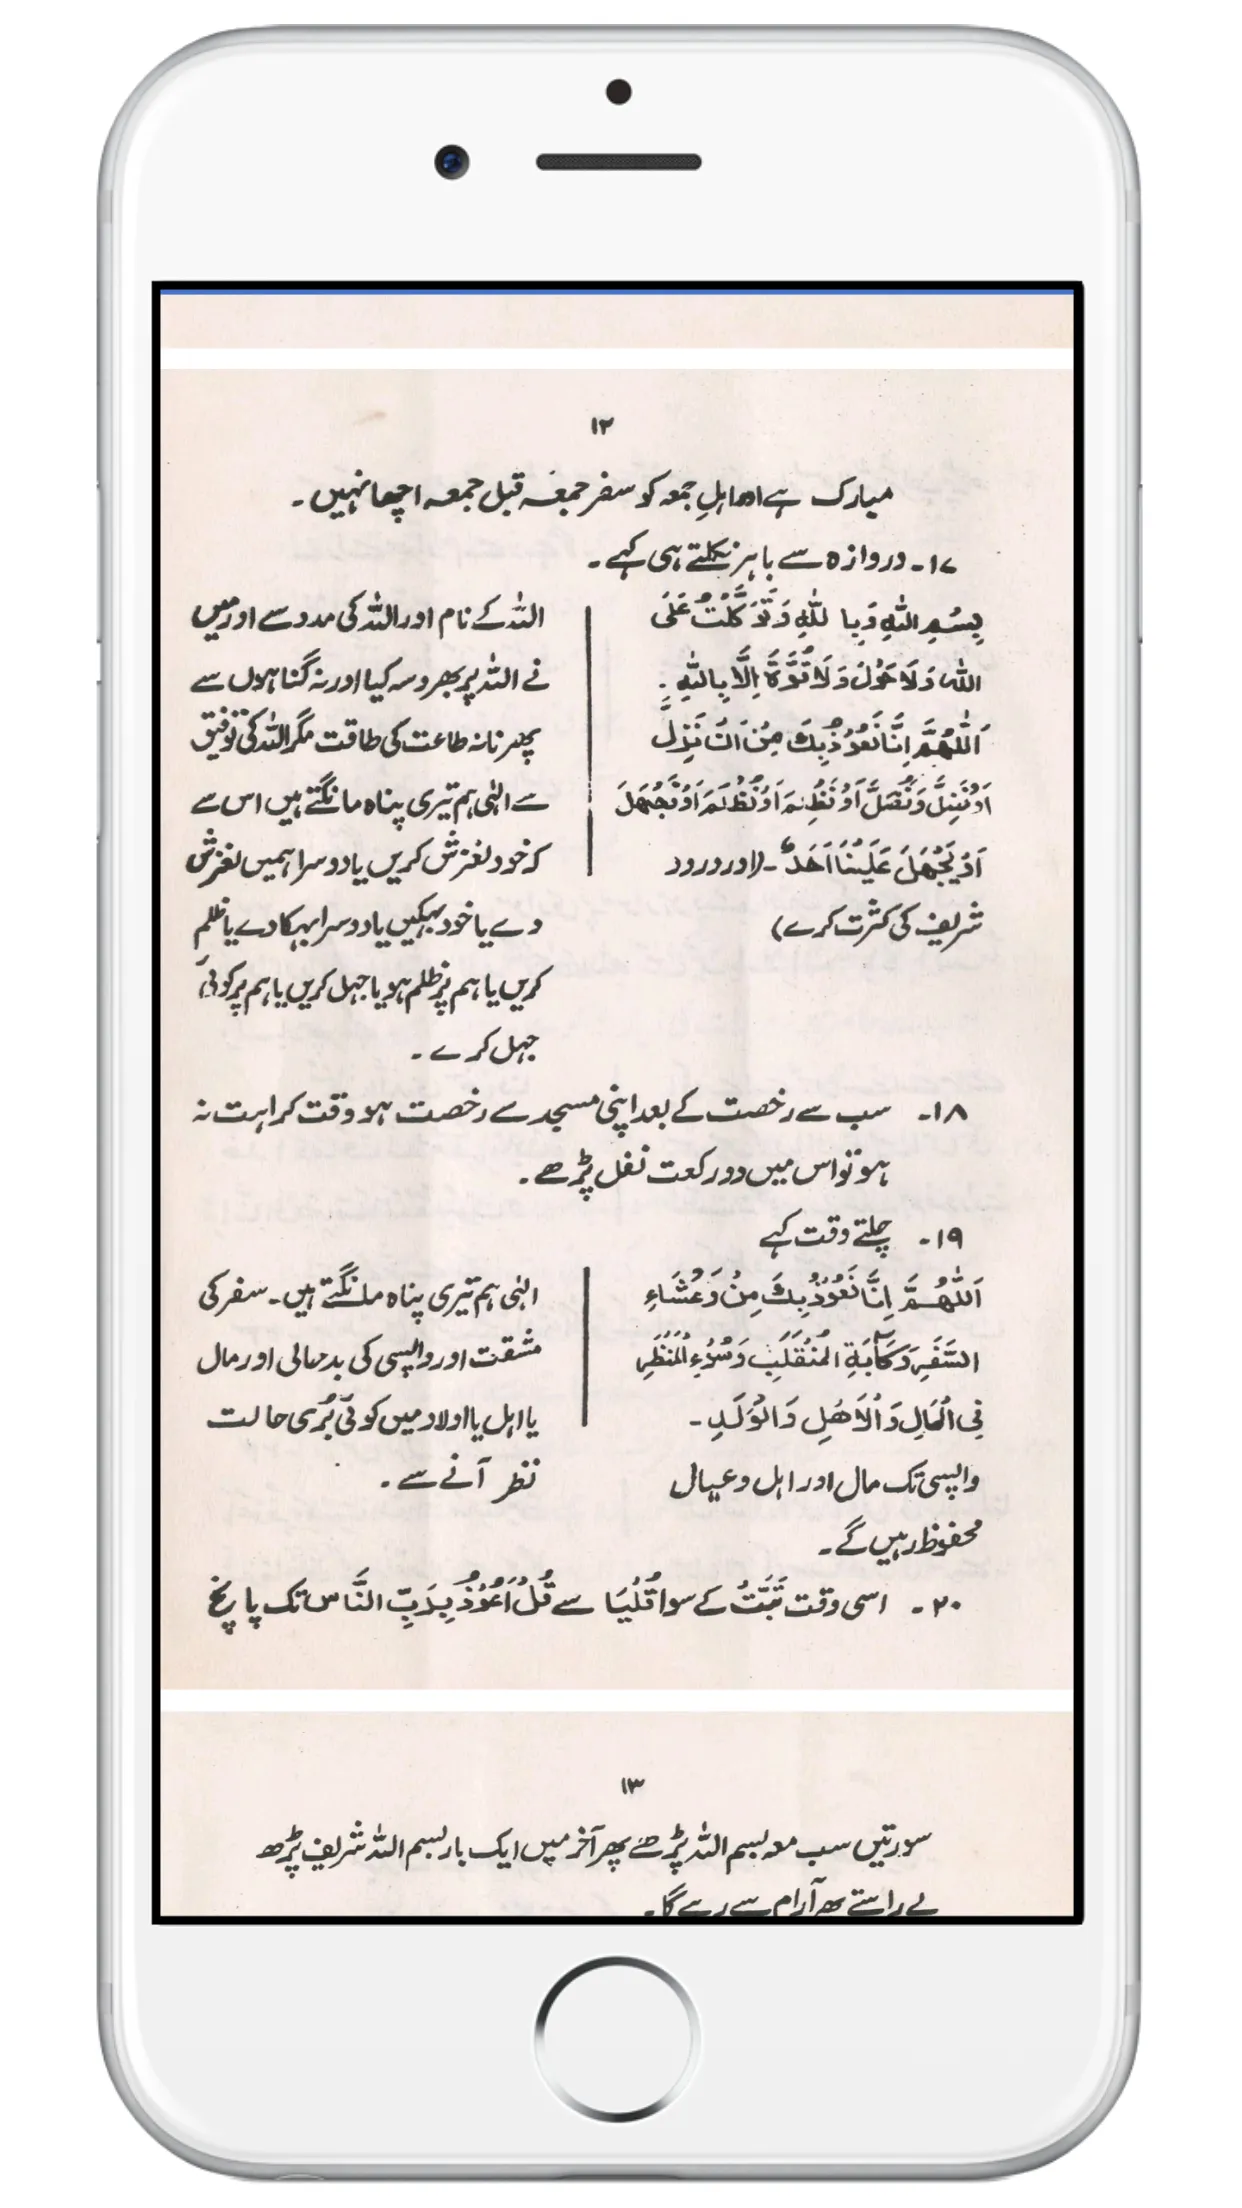 ۱۲
مبارک ہے اور اہلِ جمعہ کو سفر جمعہ قبل جمعہ اچھا نہیں ۔
۱۷۔ دروازہ سے باہر نکلتے ہی کہے ۔
بِسْمِ اللّٰهِ وَبِا للّٰهِ وَتَوَكَّلْتُ عَلَی
اللّٰه وَلَا حَوْلَ وَلَا قُوَّةَ اِلَّا بِاللّٰهِ ۔
اَللّٰهُمَّ اِنَّا نَعُوْذُ بِكَ مِنْ اَنْ نَزِلَّ
اَوْ نَضِلَّ اَوْ نَظْلِمَ اَوْ نُظْلَمَ اَوْ نَجْهَلَ
اَوْ يَجْهَلَ عَلَيْنَا اَحَدٌ ۔ (اور درود
شریف کی کثرت کرے)
اللہ کے نام اور اللہ کی مدد سے اور میں
نے اللہ پر بھروسہ کیا اور نہ گناہوں سے
پھرنا نہ طاعت کی طاقت مگر اللہ کی توفیق
سے الٰہی ہم تیری پناہ مانگتے ہیں اس سے
کہ خود لغزش کریں یا دوسرا ہمیں لغزش
دے یا خود بہکیں یا دوسرا بہکا دے یا ظلم
کریں یا ہم پر ظلم ہو یا جہل کریں یا ہم پر کوئی
جہل کرے ۔
۱۸۔ سب سے رخصت کے بعد اپنی مسجد سے رخصت ہو وقت کراہت نہ
ہو تو اس میں دو رکعت نفل پڑھے ۔
۱۹۔ چلتے وقت کہے
اَللّٰهُمَّ اِنَّا نَعُوْذُ بِكَ مِنْ وَعْشَاءِ
السَّفَرِ وَكَآبَةِ الْمُنْقَلَبِ وَسُوْءِ الْمَنْظَرِ
فِی الْمَالِ وَالْاَهْلِ وَالْوَلَدِ ۔
واپسی تک مال اور اہل و عیال
محفوظ رہیں گے ۔
الٰہی ہم تیری پناہ مانگتے ہیں ۔ سفر کی
مشقت اور واپسی کی بدحالی اور مال
یا اہل یا اولاد میں کوئی بُری حالت
نظر آنے سے ۔
۲۰۔ اسی وقت تَبَّتْ کے سوا قُلْیَا سے قُلْ اَعُوْذُ بِرَبِّ النَّاس تک پانچ
۱۳
سورتیں سب معہ بسم اللہ پڑھے پھر آخر میں ایک بار بسم اللہ شریف پڑھ
لے راستے بھر آرام سے رہے گا۔